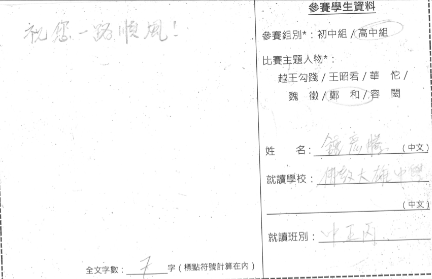 祝您一路順風!
全文字數:7字(標點符號計算在內)
參賽學生資料
參賽組別*:初中組/高中組
比賽主題人物*:
越王勾踐/王昭君/華 佗/
魏 徵/鄭 和/容 閎
姓 名:(中文)
就讀學校:大師中學
(中文)
就讀班別:中五丙